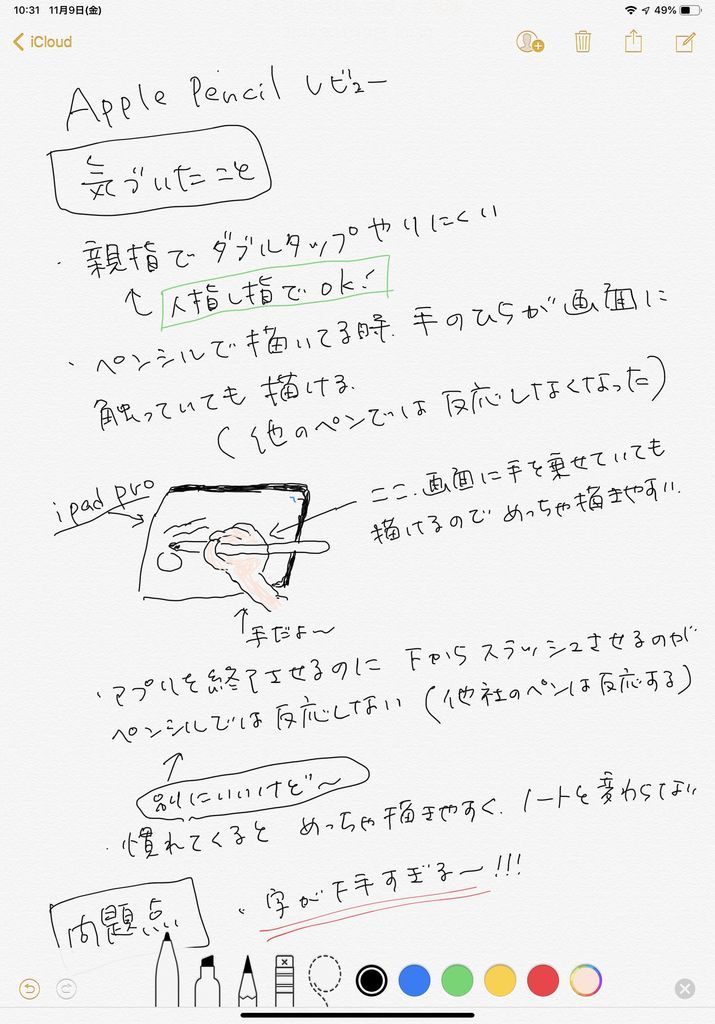 10:31 11月9日(金)
49%
iCloud
Apple Pencil レビュー
気づいたこと
・親指でダブルタップやりにくい
人指し指でok!
・ペンシルで描いてる時、手のひらが画面に
触っていても描ける。
(他のペンでは反応しなくなった)
ipad pro
ここ、画面に手を乗せていても
描けるのでめっちゃ描きやすい。
手だよ〜
・アプリを終了させるのに下からスラッシュさせるのが
ペンシルでは反応しない(他社のペンは反応する)
別にいいけど〜
・慣れてくるとめっちゃ描きやすく、ノートと変わらない
問題点
・字が下手すぎる〜!!!